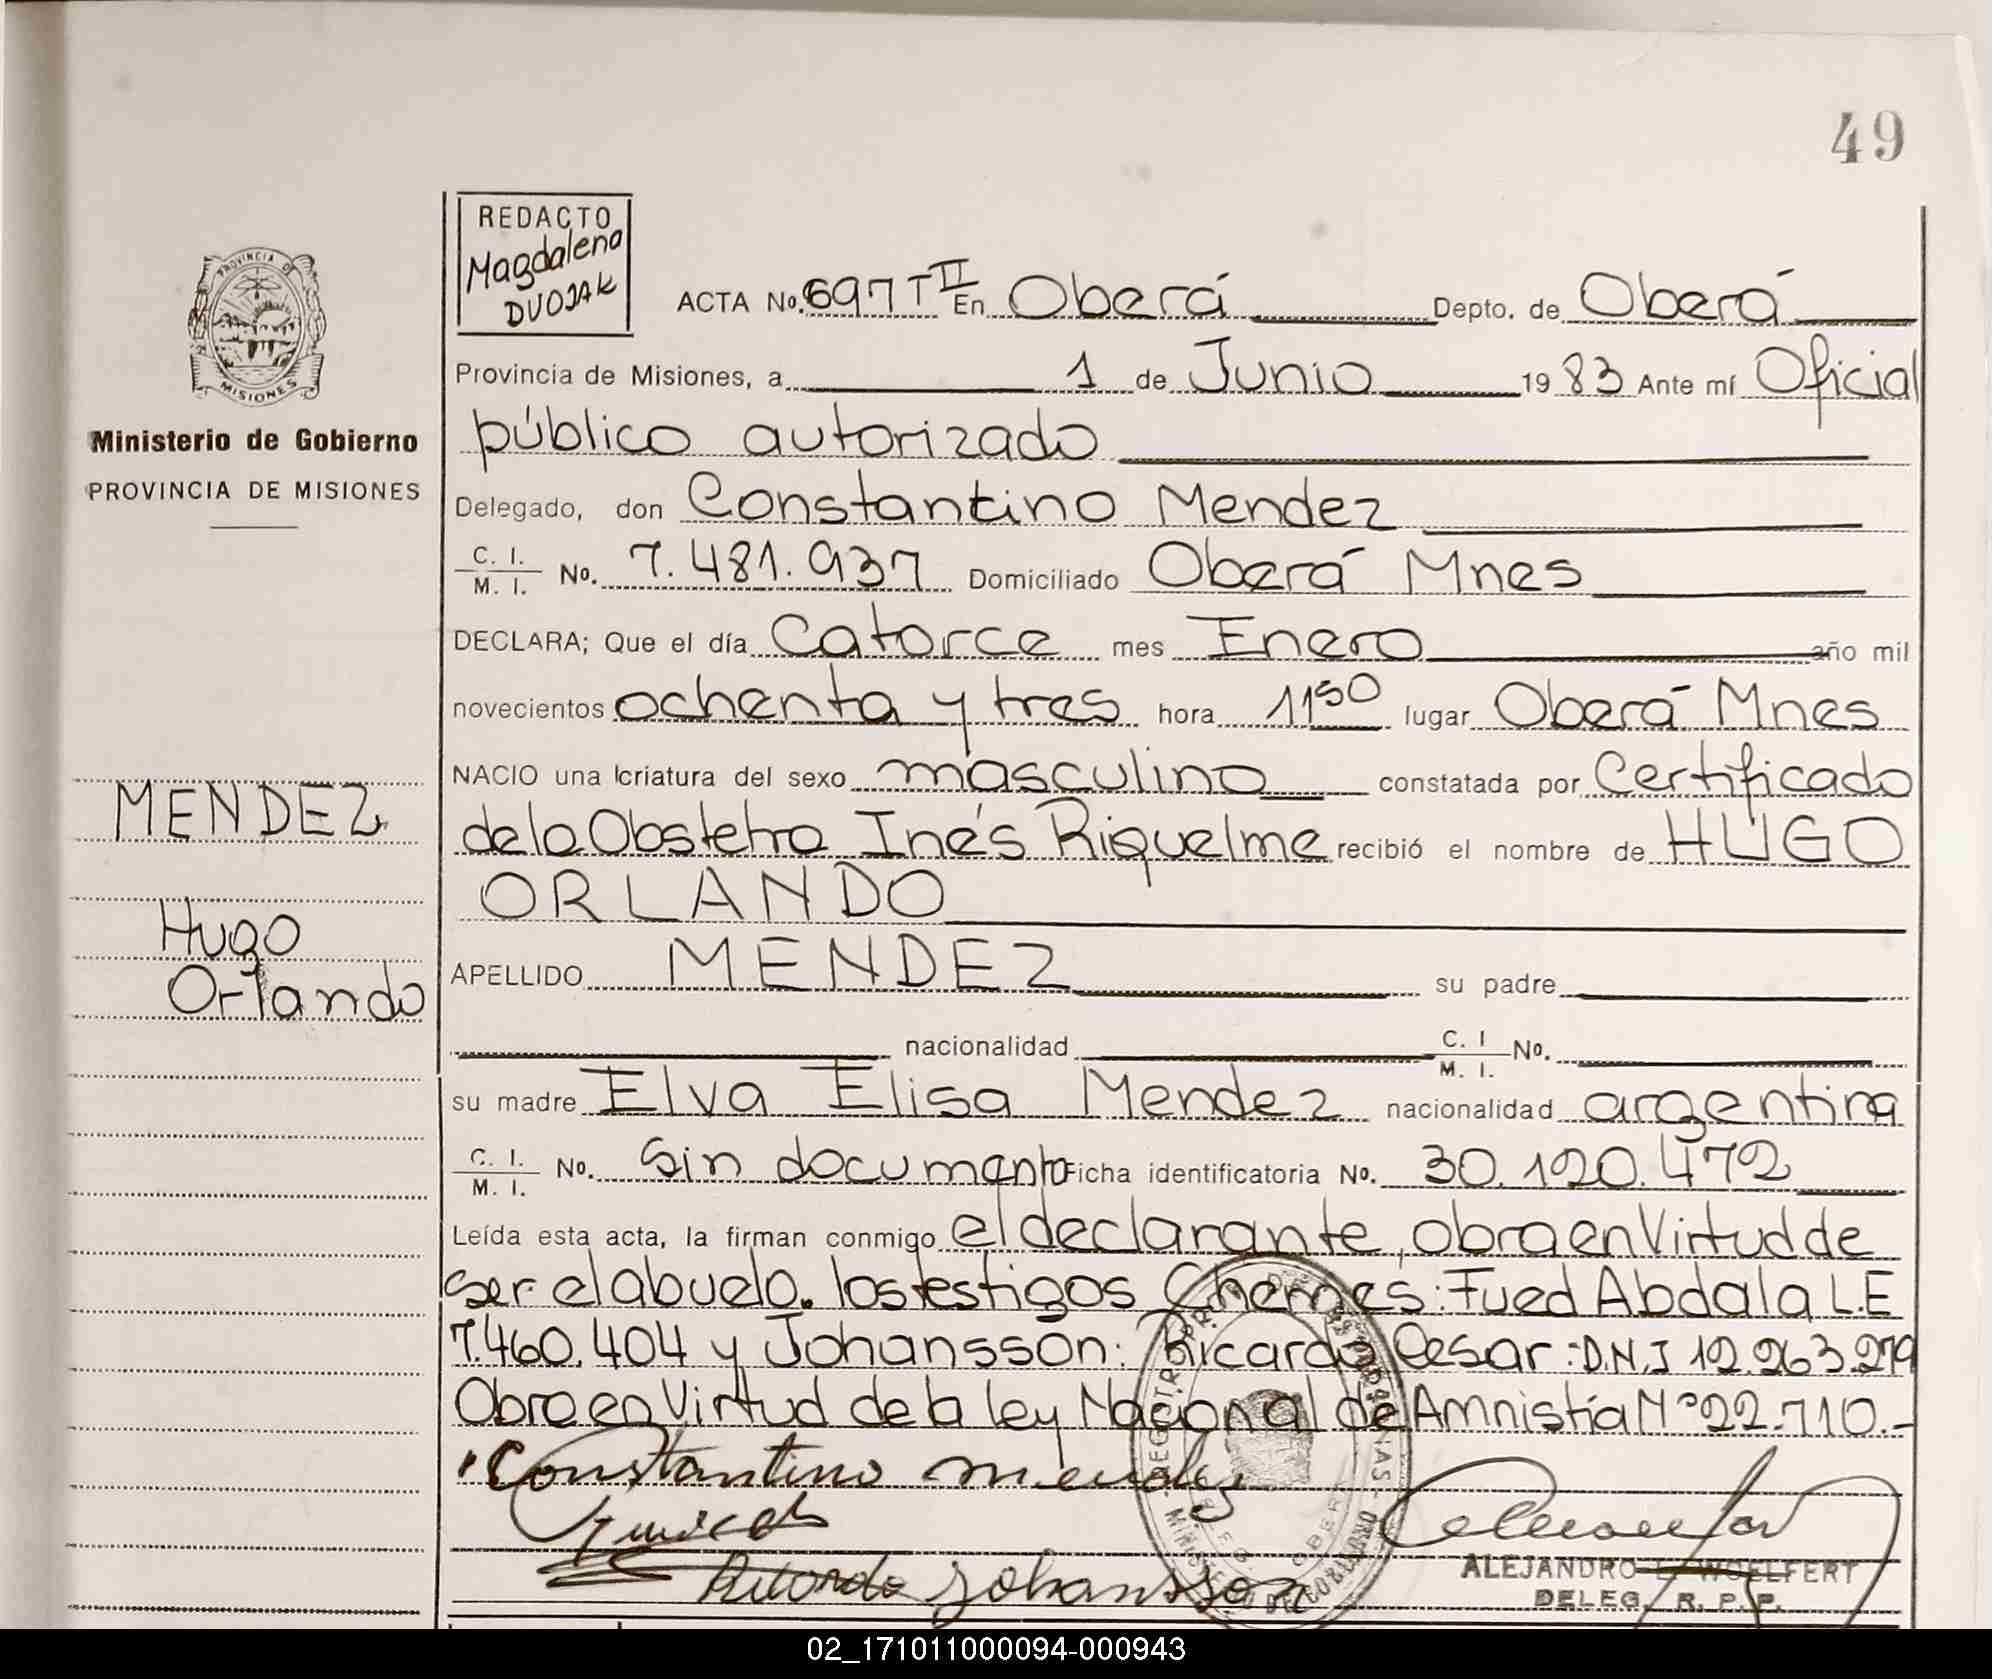 49
REDACTO
Magdalena
DVOJAK
ACTA No. 697 T II En Oberá Depto. de Oberá
Provincia de Misiones, a 1 de Junio 1983 Ante mí Oficial
público autorizado
Delegado, don Constantino Mendez
C. I. / M. I. No. 7.481.937 Domiciliado Oberá Mnes
DECLARA; Que el día Catorce mes Enero año mil
novecientos ochenta y tres hora 11 50 lugar Oberá Mnes
NACIO una criatura del sexo masculino constatada por Certificado
de la Obstetra Inés Riquelme recibió el nombre de HUGO
ORLANDO
APELLIDO MENDEZ su padre
nacionalidad C. I / M. I. No.
su madre Elva Elisa Mendez nacionalidad argentina
C. I. / M. I. No. Sin documento Ficha identificatoria No. 30.120.472
Leída esta acta, la firman conmigo el declarante, obra en Virtud de
ser el abuelo. los testigos Chemes: Fued Abdala L.E
7.460.404 y Johansson: Ricardo Cesar: D.N.I 12.263.279
Obra en Virtud de la ley Nacional de Amnistía Nº 22.710.-
Constantino Mendez
Ricardo Johansson
ALEJANDRO L. WOELFERT
DELEG. R. P. P.
PROVINCIA DE
MISIONES
Ministerio de Gobierno
PROVINCIA DE MISIONES
MENDEZ
Hugo
Orlando
02_171011000094-000943